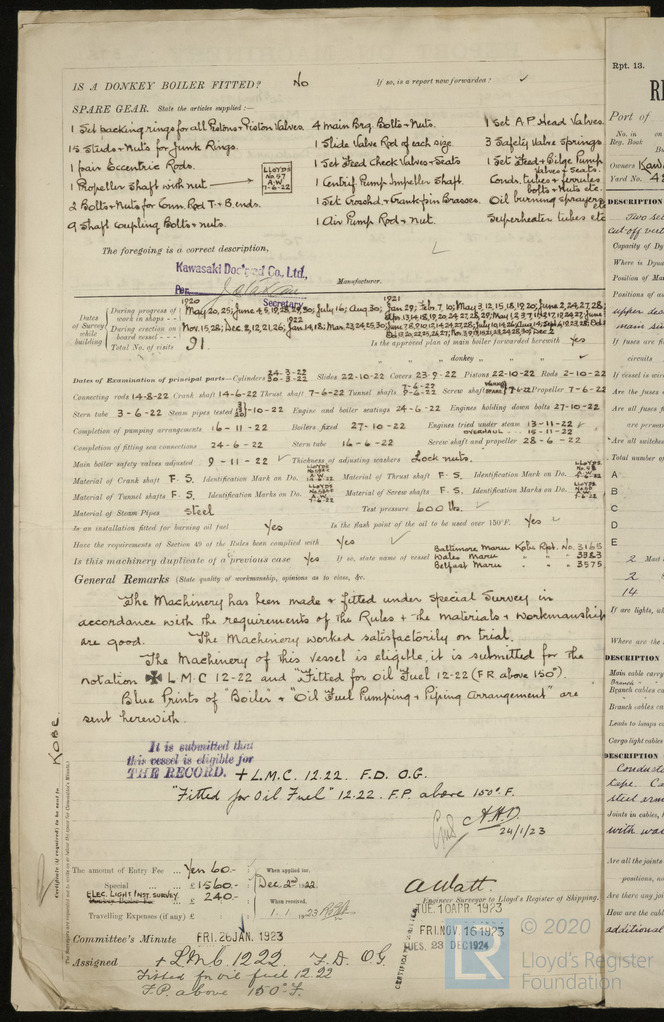 IS A DONKEY BOILER FITTED? No If so, is a report now forwarded? ✓
SPARE GEAR. State the articles supplied:—
1 Set packing rings for all Pistons + Piston Valves. 4 main Brg. Bolts + Nuts. 1 Set A.P. Head Valves.
15 Studs + Nuts for Junk Rings. 1 Slide Valve Rod of each size. 3 Safety Valve Springs
1 pair Eccentric Rods. 1 Set Feed Check Valves + Seats 1 Set Feed + Bilge Pump Valves + Seats.
1 Propeller Shaft with nut LLOYDS No 97 A.W. 7-6-22 1 Centrif. Pump Impeller Shaft. Conds. tubes + ferrules bolts + Nuts etc.
2 Bolts + Nuts for Conn. Rod T. + B. ends. 1 Set Crosshd + Crankpin Brasses. Oil burning sprayers etc
9 Shaft Coupling Bolts + nuts. 1 Air Pump Rod + Nut. Superheater tubes etc
The foregoing is a correct description,
Kawasaki Dockyard Co., Ltd.,
Per Manufacturer.
Secretary
1920 1921
Dates of Survey while building
During progress of work in shops - -
During erection on board vessel - - -
Total No. of visits 91. Is the approved plan of main boiler forwarded herewith Yes
" " " donkey " " " ✓
Dates of Examination of principal parts—Cylinders 24-3-22 30-3-22 Slides 22-10-22 Covers 23-9-22 Pistons 22-10-22 Rods 2-10-22
Connecting rods 14-8-22 Crank shaft 14-6-22 Thrust shaft 7-6-22 Tunnel shafts 7-6-22 9-6-22 Screw shaft 7-6-22 Propeller 7-6-22
Stern tube 3-6-22 Steam pipes tested 10-22 Engine and boiler seatings 24-6-22 Engines holding down bolts 27-10-22
Completion of pumping arrangements 16-11-22 Boilers fixed 27-10-22 Engines tried under steam 13-11-22 OVERHAUL 15-11-22
Completion of fitting sea connections 24-6-22 Stern tube 16-6-22 Screw shaft and propeller 28-6-22
Main boiler safety valves adjusted 9-11-22 Thickness of adjusting washers Lock nuts.
Material of Crank shaft F.S. Identification Mark on Do. Material of Thrust shaft F.S. Identification Mark on Do.
Material of Tunnel shafts F.S. Identification Marks on Do. Material of Screw shafts F.S. Identification Marks on Do.
Material of Steam Pipes steel Test pressure 600 lbs.
Is an installation fitted for burning oil fuel Yes Is the flash point of the oil to be used over 150°F. Yes
Have the requirements of Section 49 of the Rules been complied with Yes
Is this machinery duplicate of a previous case Yes If so, state name of vessel Baltimore Maru Kobe Rpt. No. 3165
Wales Maru " " 3323
Belfast Maru " " 3575
General Remarks (State quality of workmanship, opinions as to class, &c.
The Machinery has been made + fitted under Special Survey in
accordance with the requirements of the Rules + the materials + workmanship
are good. The Machinery worked satisfactorily on trial.
The Machinery of this Vessel is eligible, it is submitted for the
notation ✠ L M C 12-22 and "Fitted for Oil Fuel 12-22 (F.P. above 150°).
Blue Prints of "Boiler" + "Oil Fuel Pumping + Piping Arrangement" are
sent herewith.
KOBE.
It is submitted that
this vessel is eligible for
THE RECORD. + L.M.C. 12.22. F.D. O.G.
"Fitted for Oil Fuel" 12.22. F.P. above 150° F.
24/1/23
The amount of Entry Fee ... Yen 60.- When applied for,
Special ... £ 1560.- Dec. 2nd 1922.
ELEC. LIGHT INST. SURVEY £ 240.- When received,
Travelling Expenses (if any) £ 1.1.1923
A. Watt.
Engineer Surveyor to Lloyd's Register of Shipping.
TUE. 10 APR. 1923
FRI. NOV. 16 1923
TUES. 23 DEC 1924
Committee's Minute FRI. 26 JAN. 1923
Assigned + LMC 12.22 F.D. O.G.
Fitted for oil fuel 12.22
F.P. above 150° F.
Rpt. 13.
Port of
No. in
Reg. Book
Owners
Yard No.
DESCRIPTION
Two se
cut-off vert
Capacity of Dy
Where is Dyna
Position of Ma
Positions of a
upper dec
main si
If fuses are fi
circuits
If vessel is wire
Are the fuses
Are all fuses f
are perma
Are all switches
Total number.
A
B
C
D
E
2 Mast
2
14
If are lights, wh
Where are the
DESCRIPTION
Main cable carry
Branch cables ca
Branch cables ca
Leads to lamps ca
Cargo light cables
DESCRIPTION
Conducto
tape. Ca
steel arm
Joints in cables, h
with wa
Are all the joints
positions, no
Are there any joi
How are the cabl
additional
LR © 2020
Lloyd's Register
Foundation